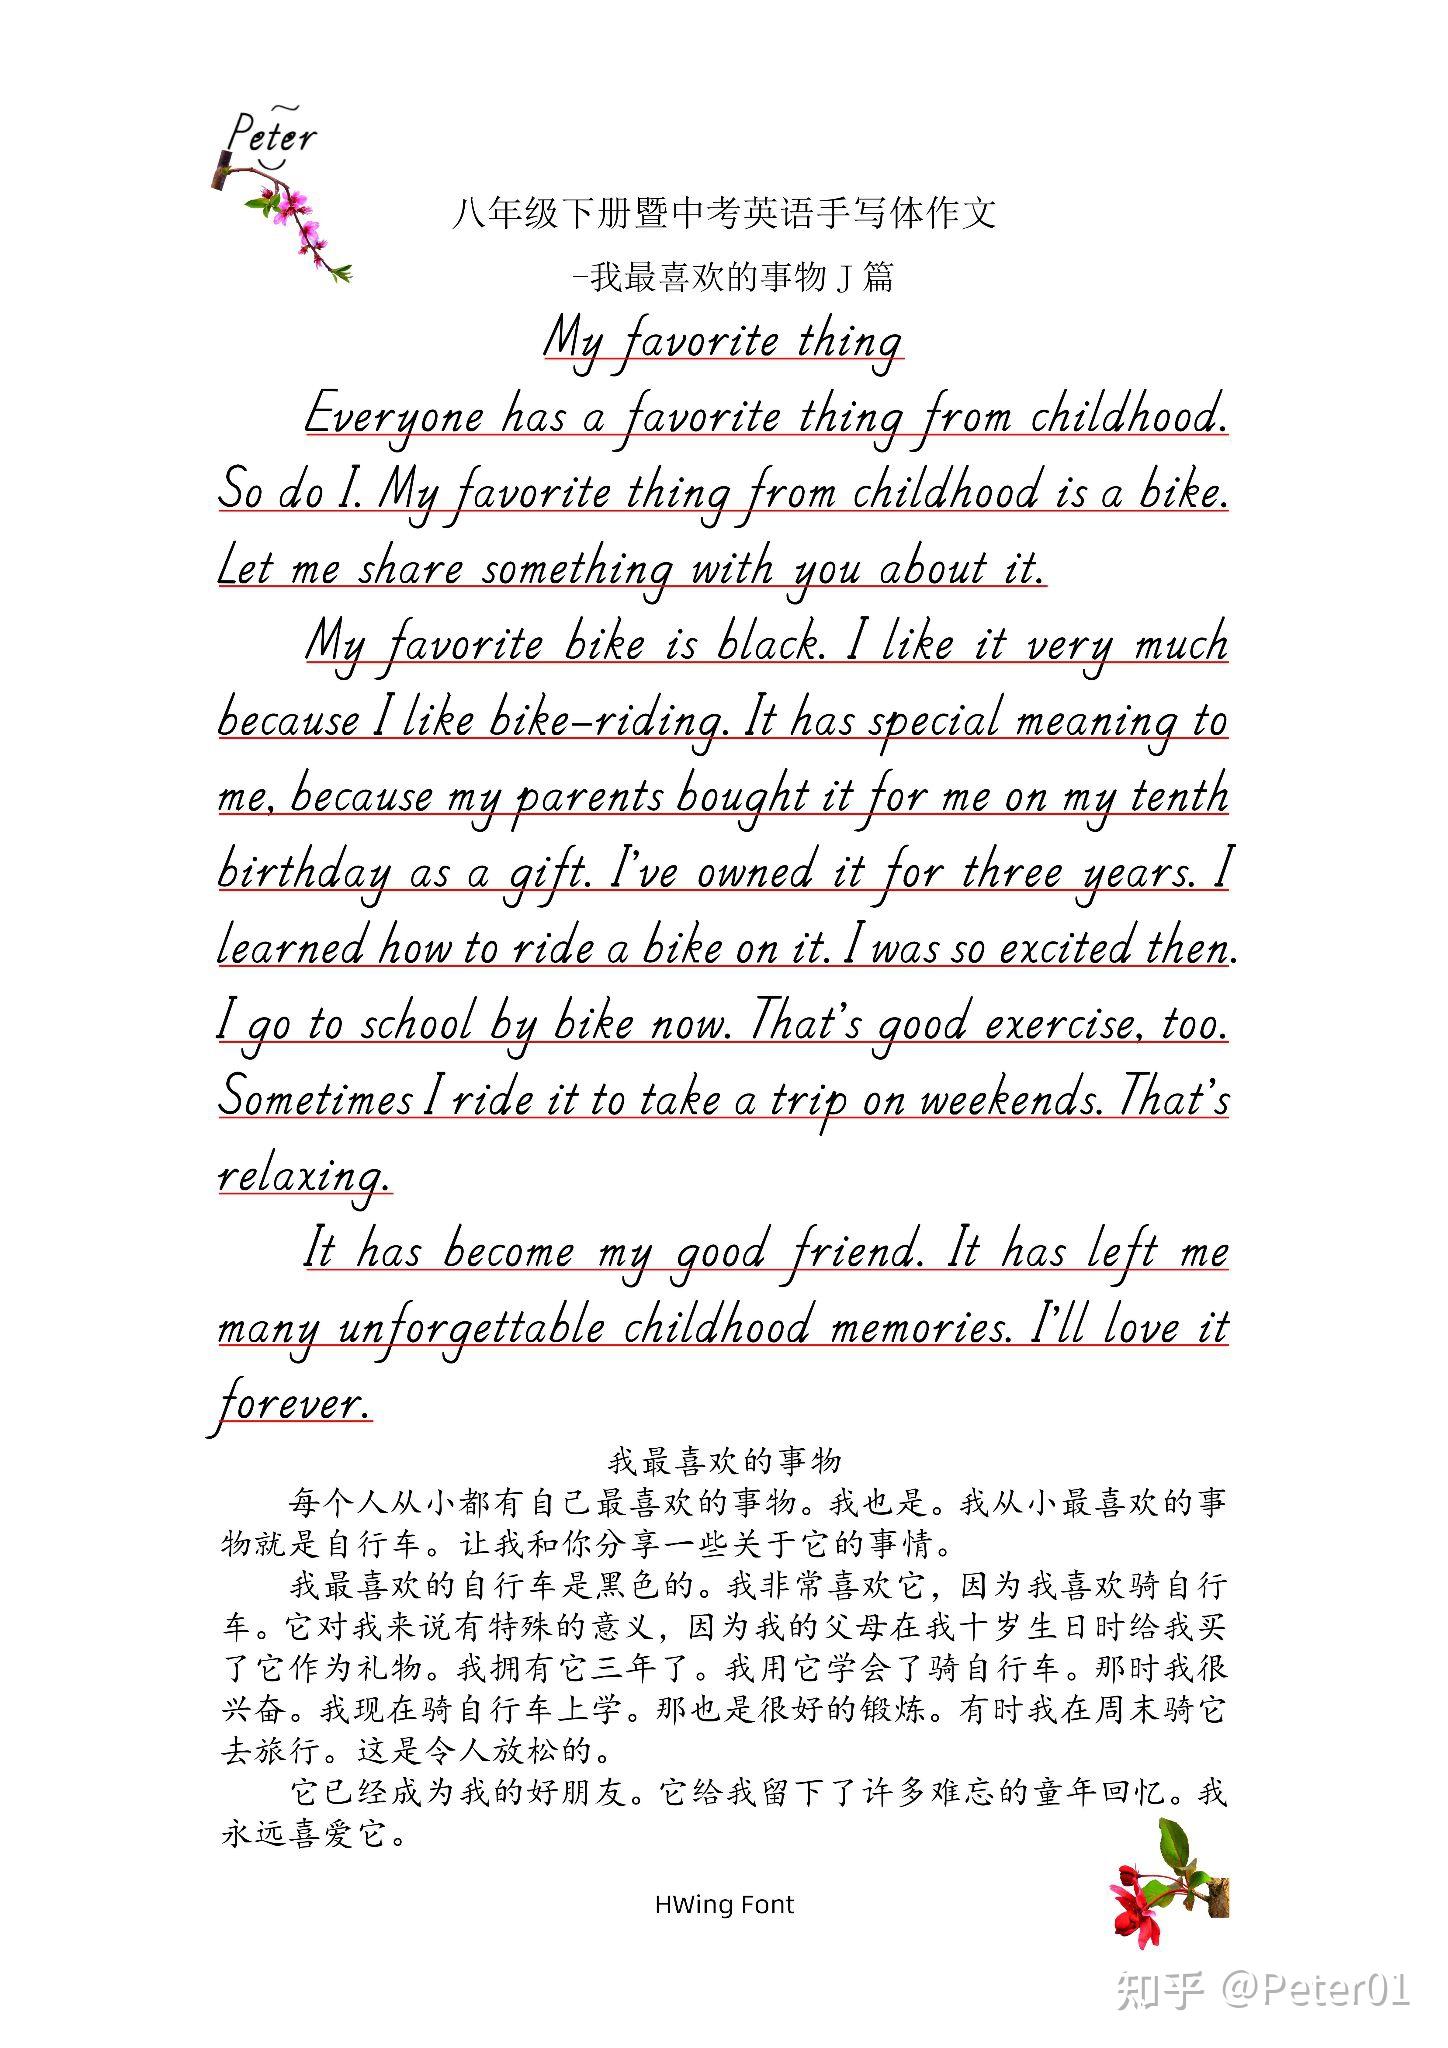 Peter
八年级下册暨中考英语手写体作文
-我最喜欢的事物 J 篇
My favorite thing
Everyone has a favorite thing from childhood.
So do I. My favorite thing from childhood is a bike.
Let me share something with you about it.
My favorite bike is black. I like it very much
because I like bike-riding. It has special meaning to
me, because my parents bought it for me on my tenth
birthday as a gift. I've owned it for three years. I
learned how to ride a bike on it. I was so excited then.
I go to school by bike now. That's good exercise, too.
Sometimes I ride it to take a trip on weekends. That's
relaxing.
It has become my good friend. It has left me
many unforgettable childhood memories. I'll love it
forever.
我最喜欢的事物
每个人从小都有自己最喜欢的事物。我也是。我从小最喜欢的事
物就是自行车。让我和你分享一些关于它的事情。
我最喜欢的自行车是黑色的。我非常喜欢它，因为我喜欢骑自行
车。它对我来说有特殊的意义，因为我的父母在我十岁生日时给我买
了它作为礼物。我拥有它三年了。我用它学会了骑自行车。那时我很
兴奋。我现在骑自行车上学。那也是很好的锻炼。有时我在周末骑它
去旅行。这是令人放松的。
它已经成为我的好朋友。它给我留下了许多难忘的童年回忆。我
永远喜爱它。
HWing Font
知乎 @Peter01